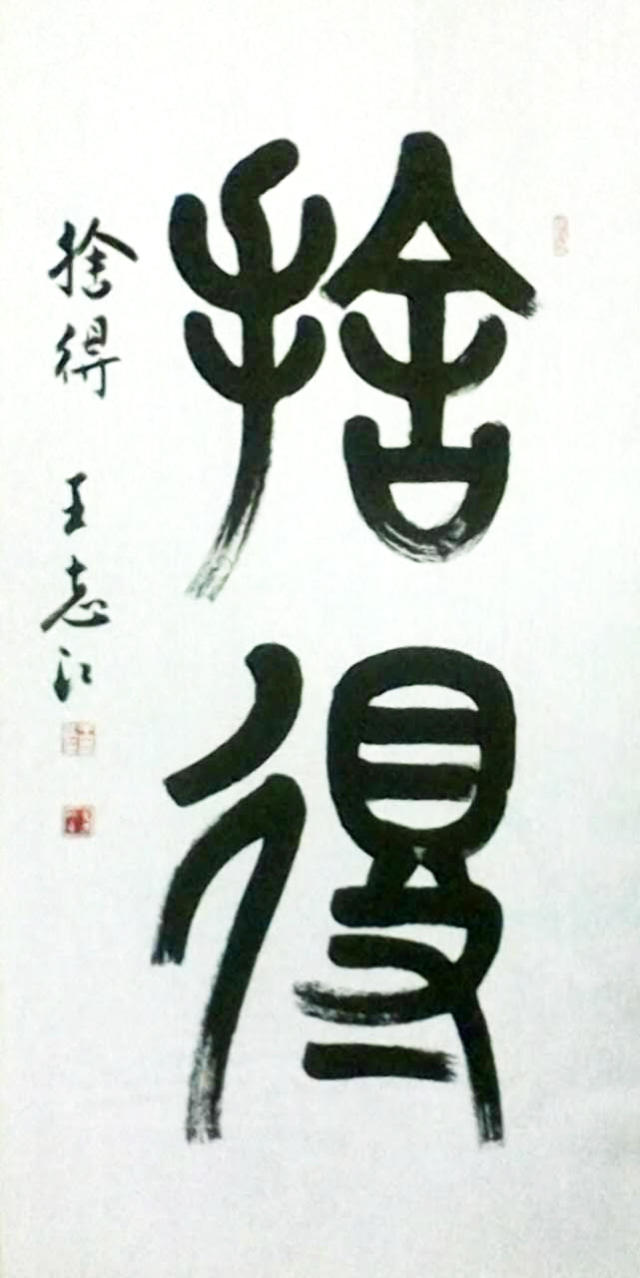 捨得
捨得 王志江